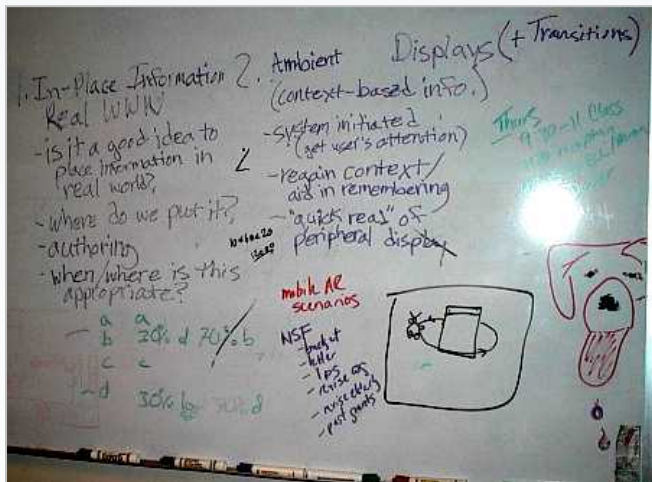 Displays (+ Transitions)
1. In-Place Information
Real WWW
- is it a good idea to
place information in
real world?
- where do we put it?
- authoring
- when/where is this
appropriate?
2. Ambient
(context-based info.)
- system initiated
(get user's attention)
- regain context/
aid in remembering
- "quick read" of
peripheral display
Thurs
9:30-11 Class
mobile AR
scenarios
NSF
- budget
- letter
- 1 pg
- past grants
a a
b 20% d 70% b
c c
d
30% b 70% d